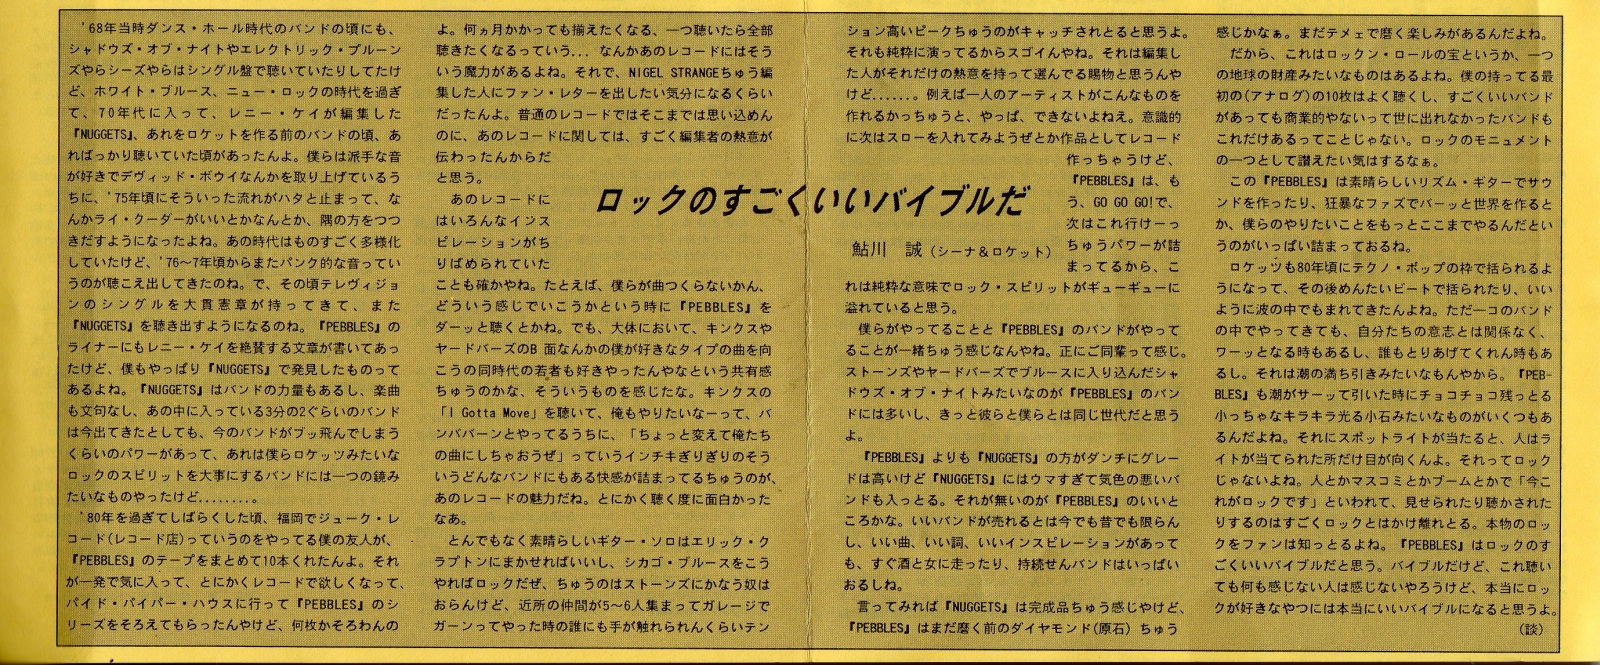 '68年当時ダンス・ホール時代のバンドの頃にも、
シャドウズ・オブ・ナイトやエレクトリック・プルーン
ズやらシーズやらはシングル盤で聴いていたりしてたけ
ど、ホワイト・ブルース、ニュー・ロックの時代を過ぎ
て、70年代に入って、レニー・ケイが編集した
『NUGGETS』、あれをロケットを作る前のバンドの頃、あ
ればっかり聴いていた頃があったんよ。僕らは派手な音
が好きでデヴィッド・ボウイなんかを取り上げているう
ちに、'75年頃にそういった流れがハタと止まって、な
んかライ・クーダーがいいとかなんとか、隅の方をつつ
きだすようになったよね。あの時代はものすごく多様化
していたけど、'76～7年頃からまたパンク的な音ってい
うのが聴こえ出してきたのね。で、その頃テレヴィジョ
ンのシングルを大貫憲章が持ってきて、また
『NUGGETS』を聴き出すようになるのね。『PEBBLES』の
ライナーにもレニー・ケイを絶賛する文章が書いてあっ
たけど、僕もやっぱり『NUGGETS』で発見したものって
あるよね。『NUGGETS』はバンドの力量もあるし、楽曲
も文句なし、あの中に入っている3分の2ぐらいのバンド
は今出てきたとしても、今のバンドがブッ飛んでしまう
くらいのパワーがあって、あれは僕らロケッツみたいな
ロックのスピリットを大事にするバンドには一つの鏡み
たいなものやったけど........。
'80年を過ぎてしばらくした頃、福岡でジューク・レ
コード(レコード店)っていうのをやってる僕の友人が、
『PEBBLES』のテープをまとめて10本くれたんよ。それ
が一発で気に入って、とにかくレコードで欲しくなって、
パイド・パイパー・ハウスに行って『PEBBLES』のシ
リーズをそろえてもらったんやけど、何枚かそろわんの
よ。何ヵ月かかっても揃えたくなる、一つ聴いたら全部
聴きたくなるっていう... なんかあのレコードにはそう
いう魔力があるよね。それで、NIGEL STRANGEちゅう編
集した人にファン・レターを出したい気分になるくらい
だったんよ。普通のレコードではそこまでは思い込めん
のに、あのレコードに関しては、すごく編集者の熱意が
伝わったんからだ
と思う。
あのレコードに
はいろんなインス
ピレーションがち
りばめられていた
ことも確かやね。たとえば、僕らが曲つくらないかん、
どういう感じでいこうかという時に『PEBBLES』を
ダーッと聴くとかね。でも、大体において、キンクスや
ヤードバーズのB 面なんかの僕が好きなタイプの曲を向
こうの同時代の若者も好きやったんやなという共有感
ちゅうのかな、そういうものを感じたな。キンクスの
「I Gotta Move」を聴いて、俺もやりたいなーって、バ
ンババーンとやってるうちに、「ちょっと変えて俺たち
の曲にしちゃおうぜ」っていうインチキぎりぎりのそう
いうどんなバンドにもある快感が詰まってるちゅうのが、
あのレコードの魅力だね。とにかく聴く度に面白かった
なあ。
とんでもなく素晴らしいギター・ソロはエリック・ク
ラプトンにまかせればいいし、シカゴ・ブルースをこう
やればロックだぜ、ちゅうのはストーンズにかなう奴は
おらんけど、近所の仲間が5～6人集まってガレージで
ガーンってやった時の誰にも手が触れられんくらいテン
ロックのすごくいいバイブルだ
鮎川 誠(シーナ&ロケット)
ション高いピークちゅうのがキャッチされとると思うよ。
それも純粋に演ってるからスゴイんやね。それは編集し
た人がそれだけの熱意を持って選んでる賜物と思うんや
けど......。例えば一人のアーティストがこんなものを
作れるかっちゅうと、やっぱ、できないよねえ。意識的
に次はスローを入れてみようぜとか作品としてレコード
作っちゃうけど、
『PEBBLES』は、も
う、GO GO GO!で、
次はこれ行けーっ
ちゅうパワーが詰
まってるから、こ
れは純粋な意味でロック・スピリットがギューギューに
溢れていると思う。
僕らがやってることと『PEBBLES』のバンドがやって
ることが一緒ちゅう感じなんやね。正にご同輩って感じ。
ストーンズやヤードバーズでブルースに入り込んだシャ
ドウズ・オブ・ナイトみたいなのが『PEBBLES』のバン
ドには多いし、きっと彼らと僕らとは同じ世代だと思う
よ。
『PEBBLES』よりも『NUGGETS』の方がダンチにグレー
ドは高いけど『NUGGETS』にはウマすぎて気色の悪いバ
ンドも入っとる。それが無いのが『PEBBLES』のいいと
ころかな。いいバンドが売れるとは今でも昔でも限らん
し、いい曲、いい詞、いいインスピレーションがあって
も、すぐ酒と女に走ったり、持続せんバンドはいっぱい
おるしね。
言ってみれば『NUGGETS』は完成品ちゅう感じやけど、
『PEBBLES』はまだ磨く前のダイヤモンド(原石) ちゅう
感じかなぁ。まだテメェで磨く楽しみがあるんだよね。
だから、これはロックン・ロールの宝というか、一つ
の地球の財産みたいなものはあるよね。僕の持ってる最
初の(アナログ)の10枚はよく聴くし、すごくいいバンド
があっても商業的やないって世に出れなかったバンドも
これだけあるってことじゃない。ロックのモニュメント
の一つとして讃えたい気はするなぁ。
この『PEBBLES』は素晴らしいリズム・ギターでサウ
ンドを作ったり、狂暴なファズでバーッと世界を作ると
か、僕らのやりたいことをもっとここまでやるんだとい
うのがいっぱい詰まっておるね。
ロケッツも80年頃にテクノ・ポップの枠で括られるよ
うになって、その後めんたいビートで括られたり、いい
ように波の中でもまれてきたんよね。ただ一コのバンド
の中でやってきても、自分たちの意志とは関係なく、
ワーッとなる時もあるし、誰もとりあげてくれん時もあ
るし。それは潮の満ち引きみたいなもんやから。『PEB-
BLES』も潮がサーッて引いた時にチョコチョコ残っとる
小っちゃなキラキラ光る小石みたいなものがいくつもあ
るんだよね。それにスポットライトが当たると、人はラ
イトが当てられた所だけ目が向くんよ。それってロック
じゃないよね。人とかマスコミとかブームとかで「今こ
れがロックです」といわれて、見せられたり聴かされた
りするのはすごくロックとはかけ離れとる。本物のロッ
クをファンは知っとるよね。『PEBBLES』はロックのす
ごくいいバイブルだと思う。バイブルだけど、これ聴い
ても何も感じない人は感じないやろうけど、本当にロッ
クが好きなやつには本当にいいバイブルになると思うよ。
(談)